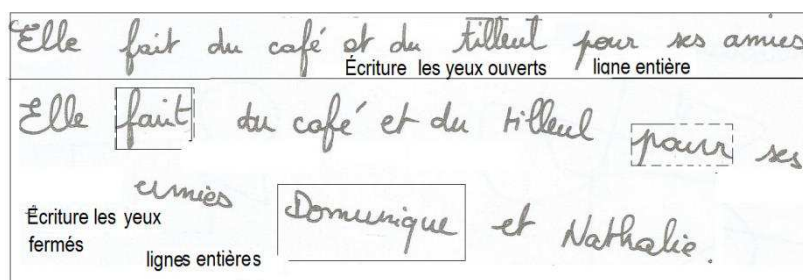 Elle fait du café et du tilleul pour ses amies
Écriture les yeux ouverts ligne entière
Elle fait du café et du tilleul pour ses
amies Domunique et Nathalie.
Écriture les yeux
fermés
lignes entières